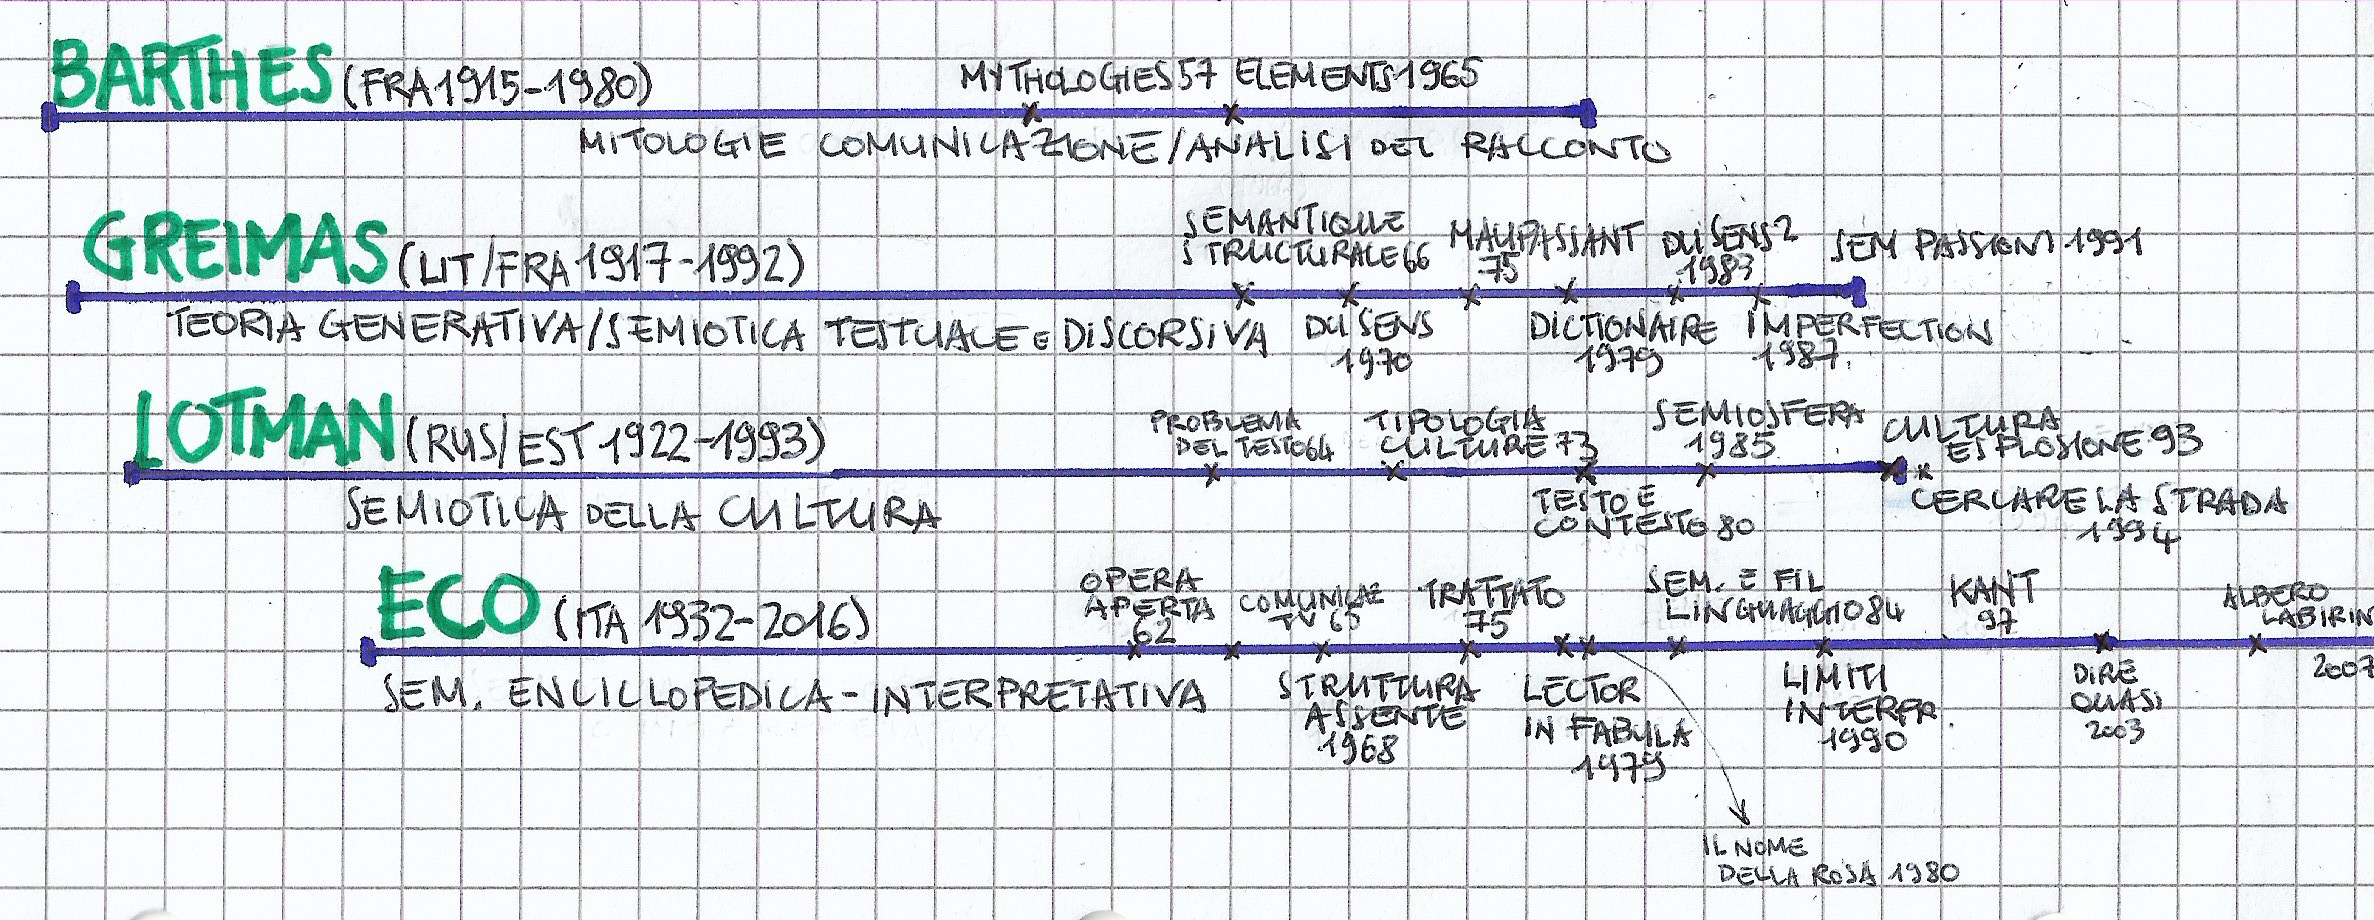 BARTHES (FRA 1915-1980)
MYTHOLOGIES 57 ELEMENTS 1965
MITOLOGIE COMUNICAZIONE/ANALISI DEL RACCONTO
GREIMAS (LIT/FRA 1917-1992)
SEMANTIQUE
STRUCTURALE 66
MAUPASSANT
75
DU SENS 2
1983
SEM PASSIONI 1991
TEORIA GENERATIVA/SEMIOTICA TESTUALE E DISCORSIVA
DU SENS
1970
DICTIONAIRE
1979
IMPERFECTION
1987
LOTMAN (RUS/EST 1922-1993)
PROBLEMA
DEL TESTO 64
TIPOLOGIA
CULTURE 73
SEMIOSFERA
1985
CULTURA
ESPLOSIONE 93
SEMIOTICA DELLA CULTURA
TESTO E
CONTESTO 80
CERCARE LA STRADA
1994
ECO (ITA 1932-2016)
OPERA
APERTA
62
COMUNICAZ
TV 65
TRATTATO
75
SEM. E FIL
LINGUAGGIO 84
KANT
97
ALBERO
LABIRIN
2007
SEM. ENCICLOPEDICA - INTERPRETATIVA
STRUTTURA
ASSENTE
1968
LECTOR
IN FABULA
1979
LIMITI
INTERPR.
1990
DIRE
QUASI
2003
IL NOME
DELLA ROSA 1980